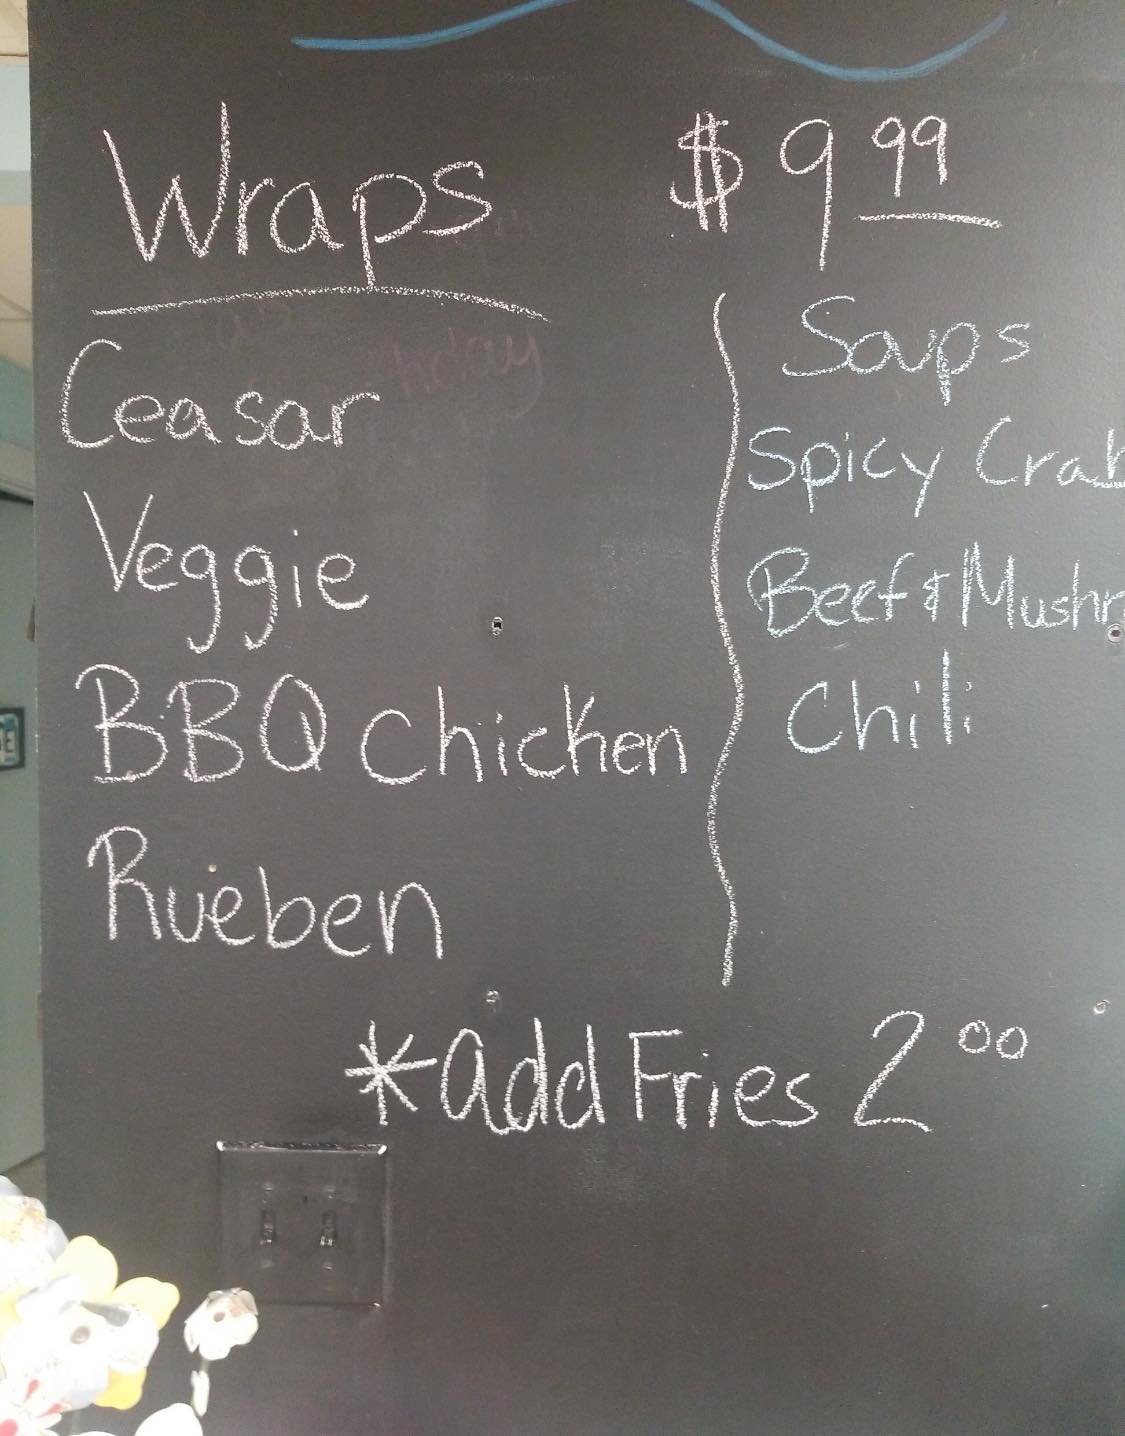 Wraps $9.99
Ceasar
Veggie
BBQ Chicken
Rueben
Soups
Spicy Crab
Beef & Mushr
Chili
*add Fries 2.00